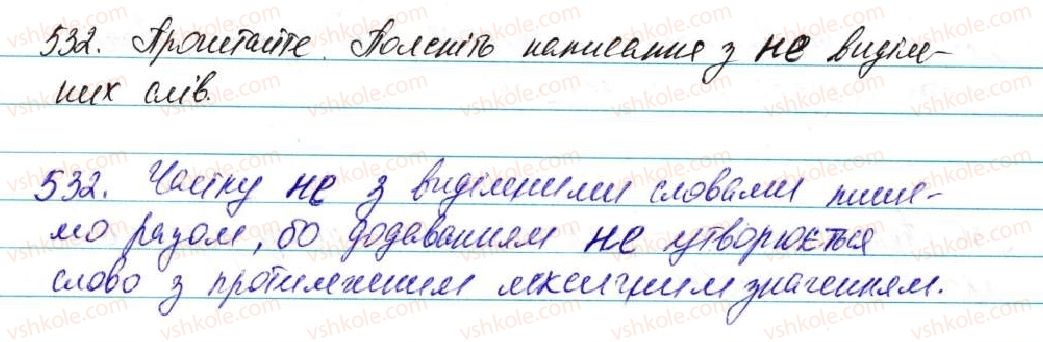 532. Прочитайте. Поясніть написання з не виділе-
них слів.
532. Частку не з виділеними словами пише-
мо разом, бо додаванням не утворюється
слово з протилежним лексичним значенням.